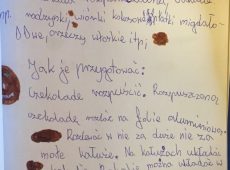 np. rodzynki, wiórki kokosowe, płatki migdało-
owe, orzechy włoskie itp;
Jak je przygotować:
Czekoladę rozpuścić. Rozpuszczoną
czekoladę na folię aluminiową.
Rozdzielać w nie za duże nie za
małe kałuże. Na kałużach układać
można układać w